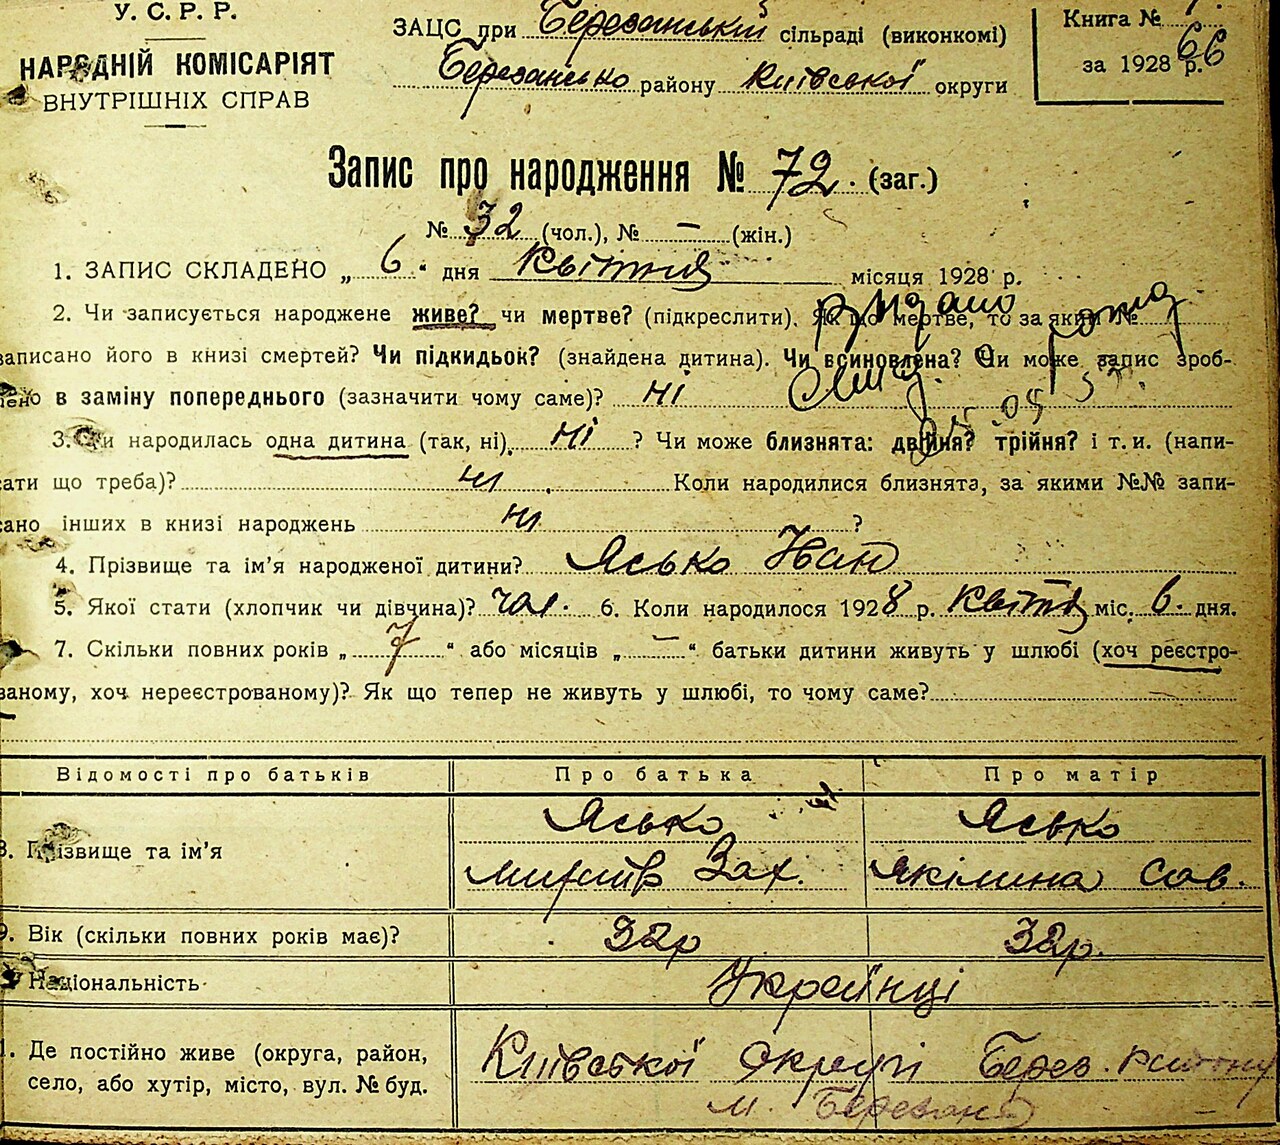 У. С. Р. Р.
НАРОДНІЙ КОМІСАРІЯТ
ВНУТРІШНІХ СПРАВ
ЗАЦС при Березанській сільраді (виконкомі)
Березансько району Київської округи
Книга №
за 1928 р. 66
Запис про народження № 72. (заг.)
№ 32 (чол.), № – (жін.)
1. ЗАПИС СКЛАДЕНО „ 6 “ дня Квітня місяця 1928 р.
2. Чи записується народжене живе? чи мертве? (підкреслити). Як що мертве, то за яким №
записано його в книзі смертей? Чи підкидьок? (знайдена дитина). Чи всиновлена? Чи може запис зроб-
лено в заміну попереднього (зазначити чому саме)? ні
3. Чи народилась одна дитина (так, ні) ні ? Чи може близнята: двійня? трійня? і т. и. (напи-
сати що треба)? ні Коли народилися близнята, за якими №№ запи-
сано інших в книзі народжень ні ?
4. Прізвище та ім’я народженої дитини? Ясько Іван
5. Якої статі (хлопчик чи дівчина)? чол. 6. Коли народилося 1928 р. Квітня міс. 6. дня.
7. Скільки повних років „ 7 “ або місяців „ – “ батьки дитини живуть у шлюбі (хоч реєстро-
ваному, хоч нереєстрованому)? Як що тепер не живуть у шлюбі, то чому саме?
Відомості про батьків Про батька Про матір
8. Прізвище та ім’я Ясько Ясько
Зах. Якілина Сав.
9. Вік (скільки повних років має)? 32р 32р.
Національність Українці
Де постійно живе (округа, район,
село, або хутір, місто, вул. № буд.
Київської Округі Берез. району
м. Березань